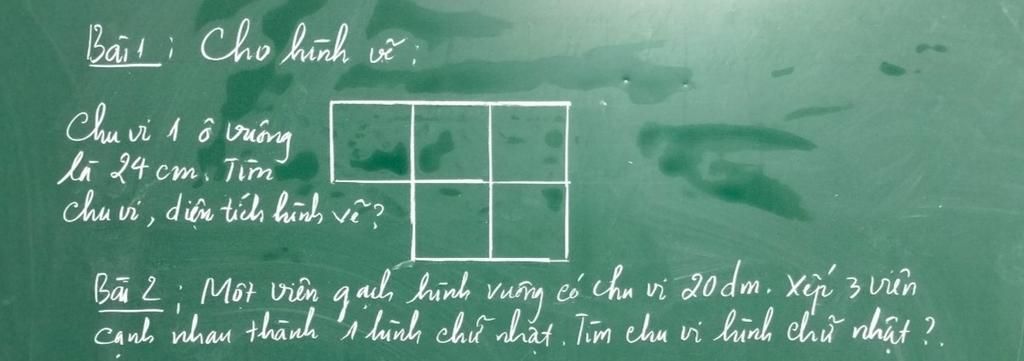 Bài 1: Cho hình vẽ:
Chu vi 1 ô vuông
là 24 cm. Tìm
chu vi, diện tích hình vẽ?
Bài 2: Một viên gạch hình vuông có chu vi 20 dm. Xếp 3 viên
cạnh nhau thành 1 hình chữ nhật. Tìm chu vi hình chữ nhật?